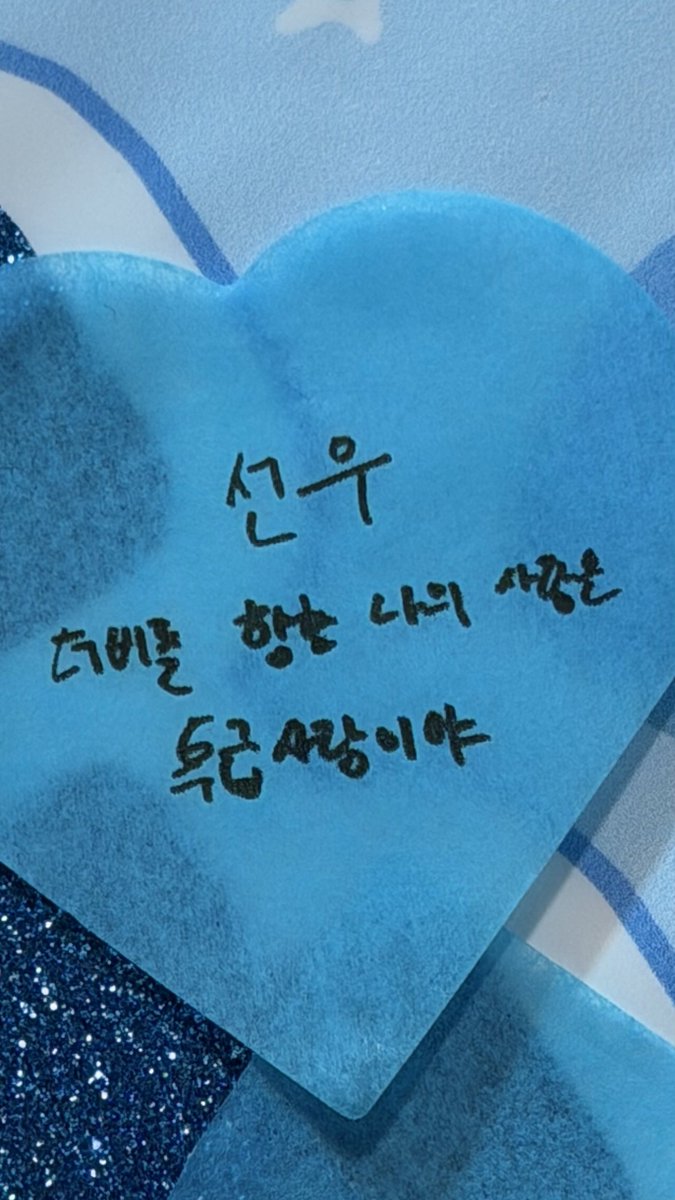 선우
더비를 향한 나의 사랑은
특급사랑이야